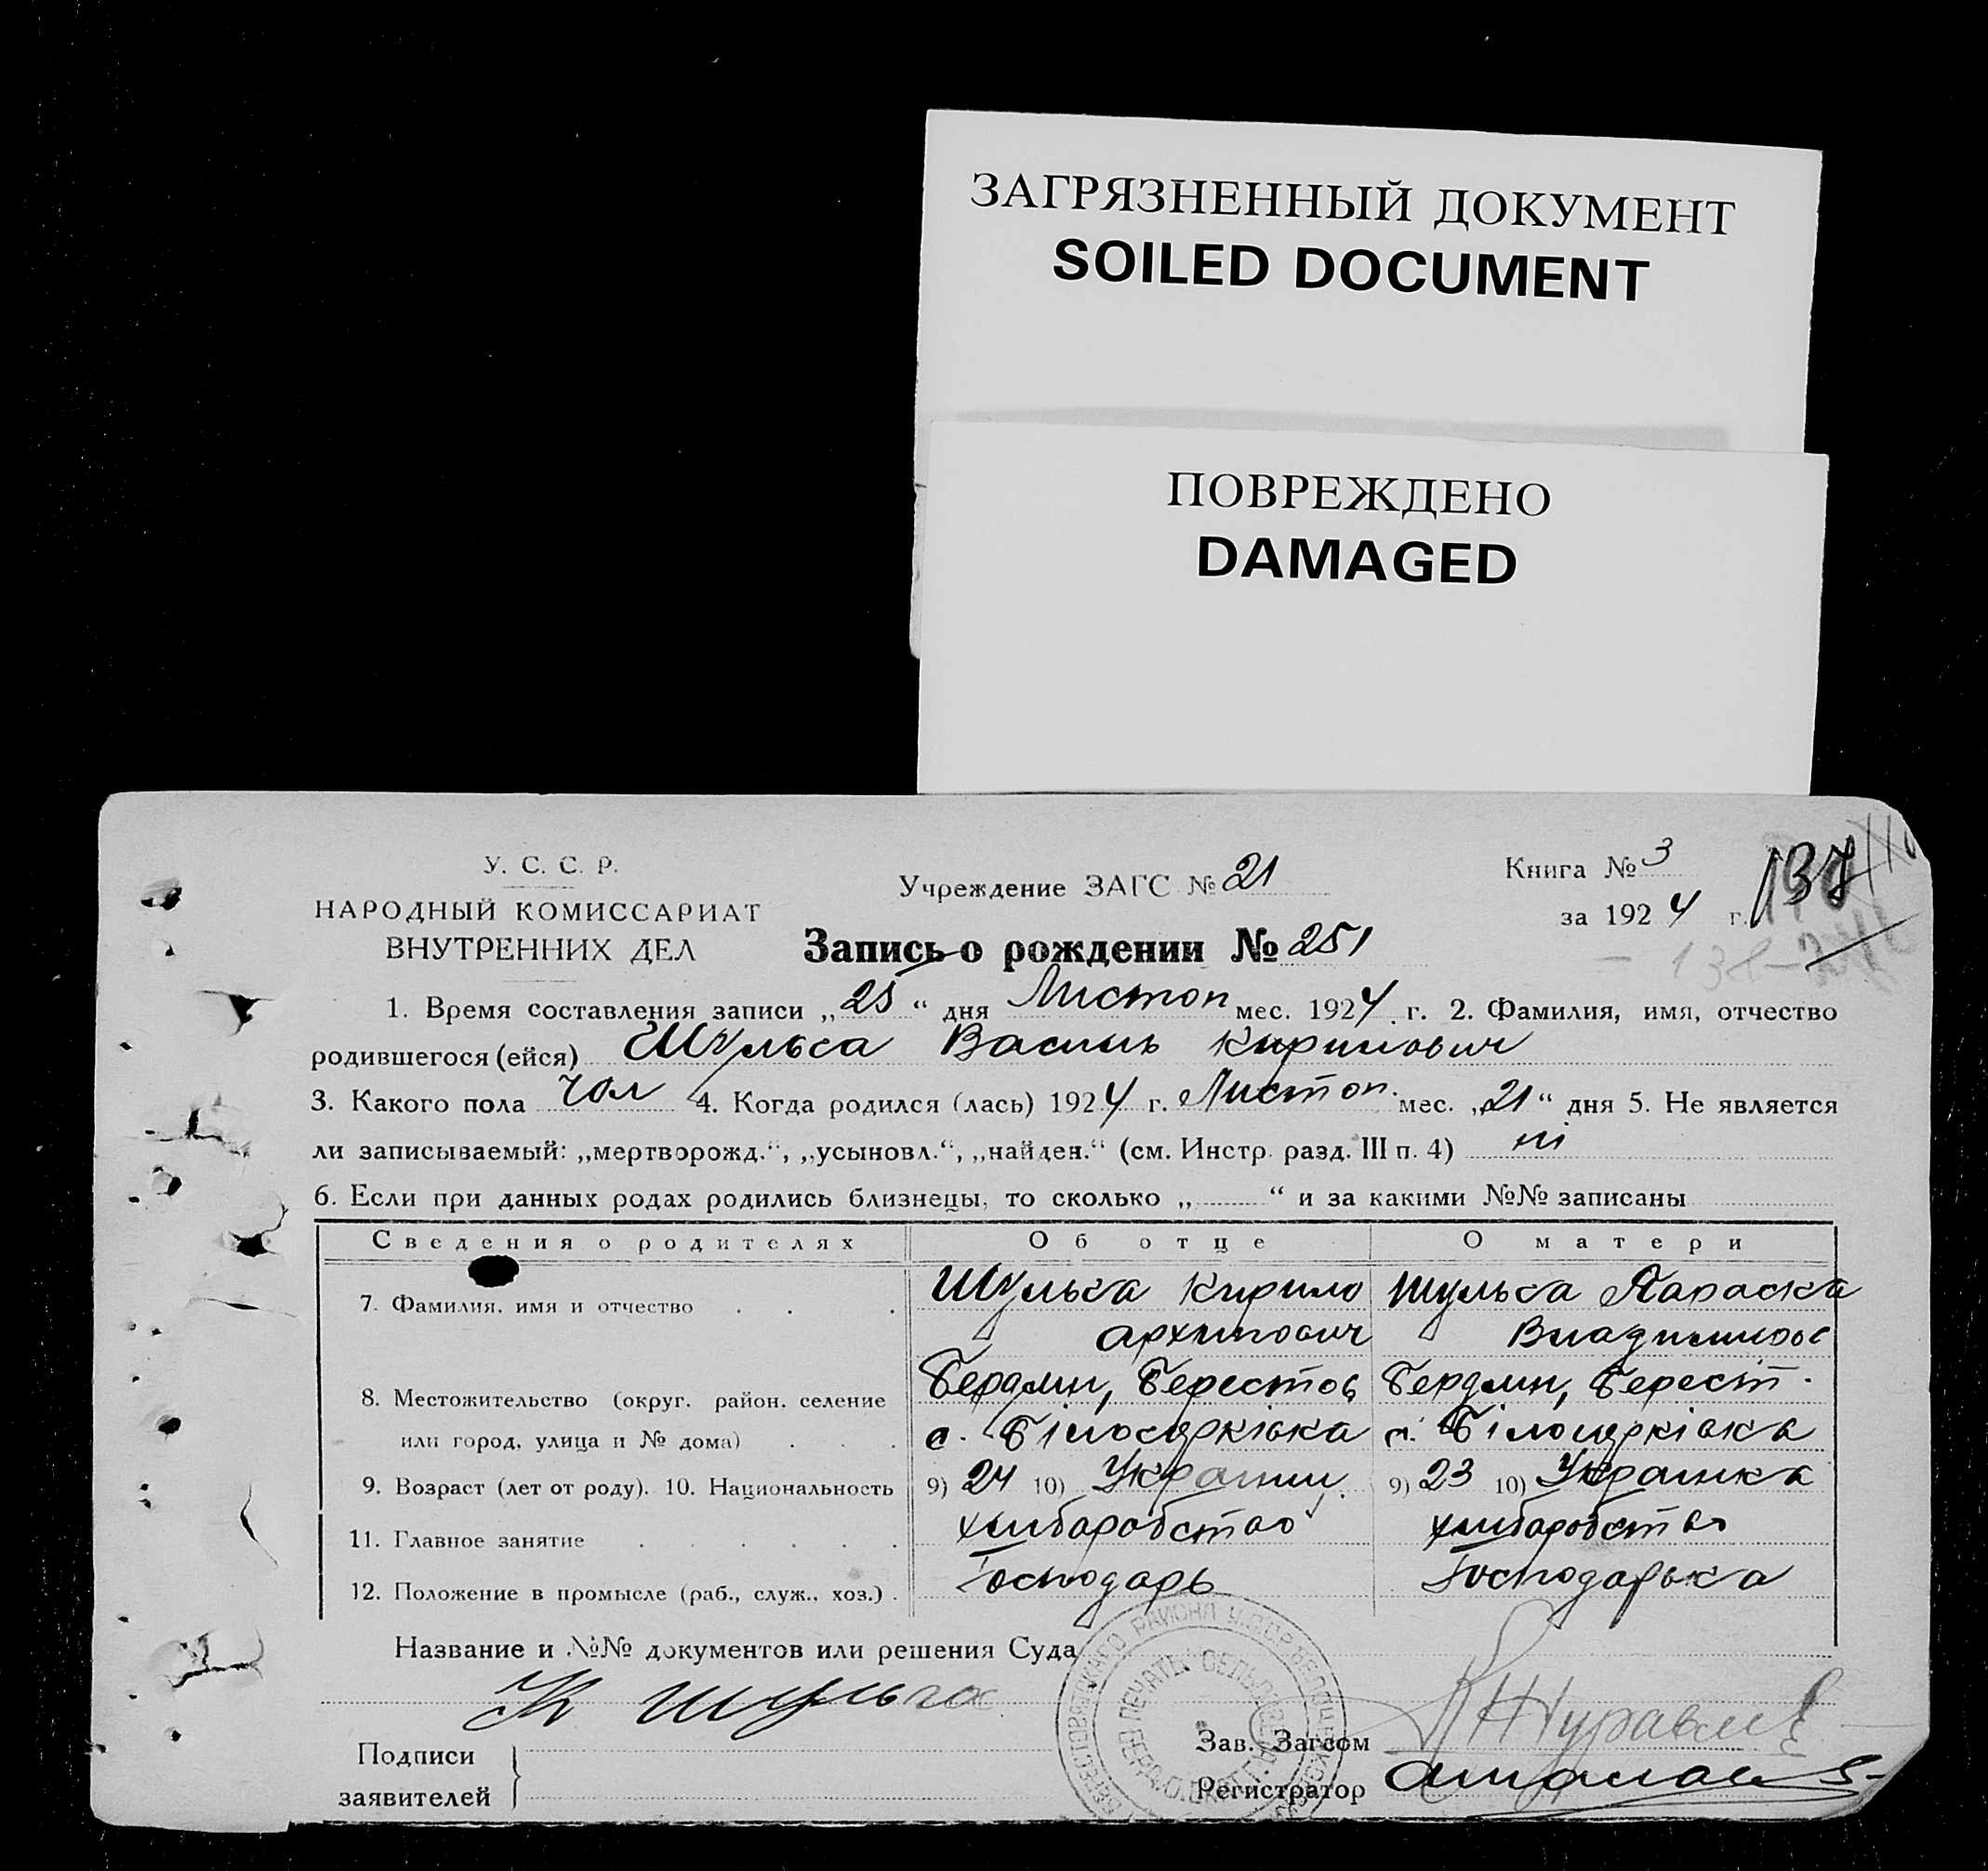 ЗАГРЯЗНЕННЫЙ ДОКУМЕНТ
SOILED DOCUMENT
ПОВРЕЖДЕНО
DAMAGED
У. С. С. Р.
НАРОДНЫЙ КОМИССАРИАТ
ВНУТРЕННИХ ДЕЛ
Учреждение ЗАГС № 21
Книга № 3
за 1924 г.
137
Запись о рождении № 251
1. Время составления записи „25“ дня Листоп мес. 1924 г. 2. Фамилия, имя, отчество
родившегося (ейся) Шульга Василь Кирилович
3. Какого пола чол 4. Когда родился (лась) 1924 г. Листоп. мес. „21“ дня 5. Не является
ли записываемый: „мертворожд.“, „усыновл.“, „найден.“ (см. Инстр. разд. III п. 4) ні
6. Если при данных родах родились близнецы, то сколько „ “ и за какими №№ записаны
Сведения о родителях Об отце О матери
7. Фамилия, имя и отчество Шульга Кирило Шульга Параска
Архипович Владимиров
Бердян, Берестов Бердян, Берест.
8. Местожительство (округ, район, селение
или город, улица и № дома) с. Білоцерківка с. Білоцерківка
9. Возраст (лет от роду). 10. Национальность 9) 24 10) Украинц. 9) 23 10) Украинка
11. Главное занятие хлиборобство хлиборобство
12. Положение в промысле (раб., служ., хоз.) Господарь Господарька
Название и №№ документов или решения Суда
К Шульга
Подписи
заявителей
Зав. Загсом Журавл
Регистратор